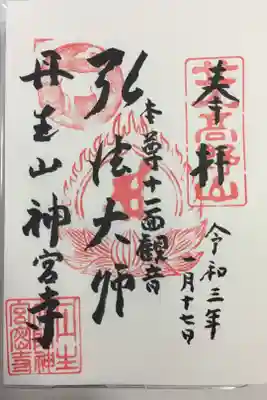 奉拝
高野山
令和三年
一月十七日
本尊十一面観音
弘法大師
丹生山神宮寺